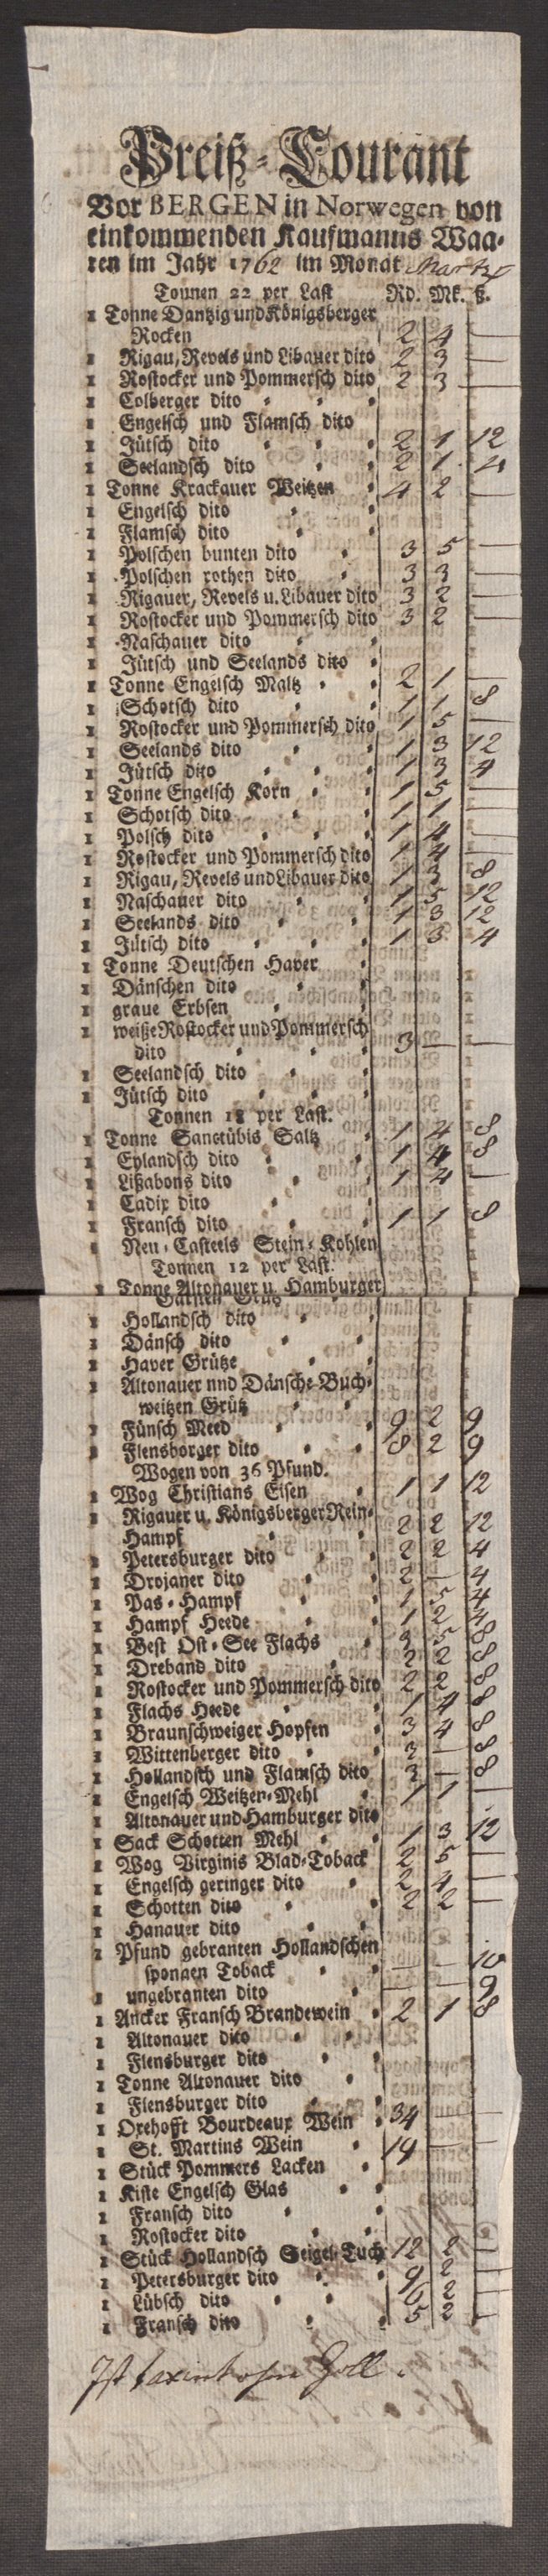 Preiß-Courant
Vor BERGEN in Norwegen von
einkommenden Kaufmanns Waa-
ren im Jahr 1762 im Monat Martz
Tonnen 22 per Last Rd. Mk. ß.
1 Tonne Dantzig und Königsberger
Rocken 2 4 —
1 Rigau, Revels und Libauer dito 2 3 —
1 Rostocker und Pommersch dito 2 3 —
1 Colberger dito
1 Engelsch und Flamsch dito
1 Jütsch dito 2 1 12
1 Seelandsch dito 2 1 4
1 Tonne Krackauer Weitzen 4 2 —
1 Engelsch dito
1 Flamsch dito
1 Polschen bunten dito 3 5 —
1 Polschen rothen dito 3 3 —
1 Rigauer, Revels u. Libauer dito 3 2 —
1 Rostocker und Pommersch dito 3 2 —
1 Naschauer dito
1 Jütsch und Seelands dito
1 Tonne Engelsch Maltz 2 1 —
1 Schotsch dito 1 1 8
1 Rostocker und Pommersch dito 1 5 —
1 Seelands dito 1 3 12
1 Jütsch dito 1 3 4
1 Tonne Engelsch Korn 1 5 —
1 Schotsch dito 1 1 —
1 Polsch dito 1 4 —
1 Rostocker und Pommersch dito 1 4 —
1 Rigau, Revels und Libauer dito 1 3 8
1 Naschauer dito 1 3 12
1 Seelands dito 1 3 12
1 Jütsch dito 1 3 4
1 Tonne Deutschen Haver
1 Dänschen dito
1 graue Erbsen
1 weiße Rostocker und Pommersch
dito 3 — —
1 Seelandsch dito
1 Jütsch dito
Tonnen 18 per Last.
1 Tonne Sanctübis Saltz 1 4 8
1 Eylandsch dito 1 4 8
1 Lißabons dito 1 4 —
1 Cadix dito
1 Fransch dito 1 1 8
1 Neu-Casteels Stein-Kohlen
Tonnen 12 per Last.
1 Tonne Altonauer u. Hamburger
Garsten Grütz
1 Hollandsch dito
1 Dänsch dito
1 Haver Grütze
1 Altonauer und Dänsche Buch-
weitzen Grütz
1 Fünsch Meed 9 2 9
1 Flensborger dito 8 2 9
Wogen von 36 Pfund.
1 Wog Christians Eisen 1 1 12
1 Rigauer u. Königsberger Rein-
Hampf 2 2 12
1 Petersburger dito 2 2 4
1 Drojaner dito 2 — 4
1 Pas-Hampf 1 5 4
1 Hampf Heede 1 2 4
1 Best Ost-See Flachs 3 5 8
1 Dreband dito 2 2 8
1 Rostocker und Pommersch dito 2 2 8
1 Flachs Heede 1 4 8
1 Braunschweiger Hopfen 3 4 8
1 Wittenberger dito 3 — 8
1 Hollandsch und Flamsch dito 3 — 8
1 Engelsch Weitzen-Mehl 1 1 —
1 Altonauer und Hamburger dito
1 Sack Schotten Mehl 1 3 12
1 Wog Virginis Blad-Toback 2 5 —
1 Engelsch geringer dito 2 4 —
1 Schotten dito 2 2 —
1 Hanauer dito
1 Pfund gebranten Hollandschen
sponnen Toback — — 10
1 ungebranten dito — — 9
1 Ancker Fransch Brandewein 2 1 8
1 Altonauer dito
1 Flensburger dito
1 Tonne Altonauer dito
1 Flensburger dito
1 Oxehofft Bourdeaux Wein 34 — —
1 St. Martins Wein 14 — —
1 Stück Pommers Lacken
1 Kiste Engelsch Glas
1 Fransch dito
1 Rostocker dito
1 Stück Hollandsch Seigel-Tuch 12 2 —
1 Petersburger dito 9 2 —
1 Lübsch dito 6 2 —
1 Fransch dito 5 2 —